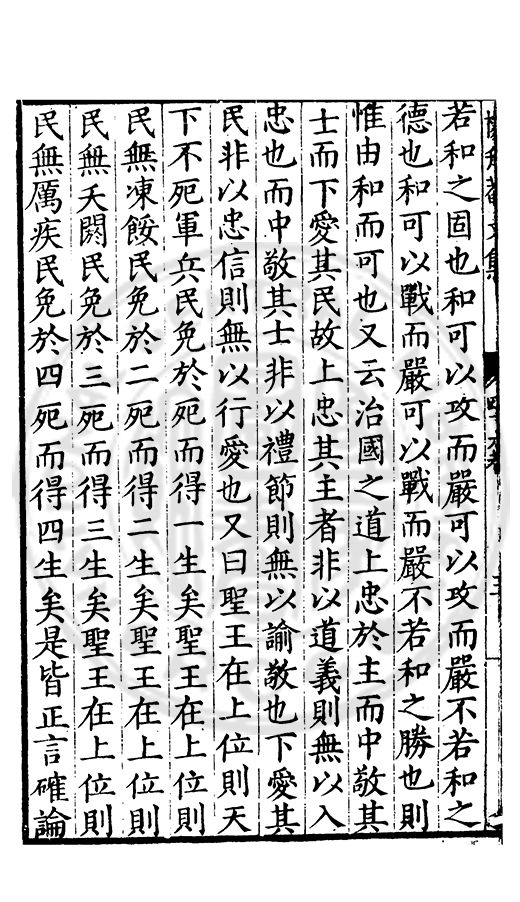 若和之固也和可以攻而嚴可以攻而嚴不若和之
德也和可以戰而嚴可以戰而嚴不若和之勝也則
惟由和而可也又云治國之道上忠於主而中敬其
士而下愛其民故上忠其主者非以道義則無以入
忠也而中敬其士非以禮節則無以諭敬也下愛其
民非以忠信則無以行愛也又曰聖王在上位則天
下不死軍兵民免於死而得一生矣聖王在上位則
民無凍餒民免於二死而得二生矣聖王在上位則
民無夭閼民免於三死而得三生矣聖王在上位則
民無厲疾民免於四死而得四生矣是皆正言確論